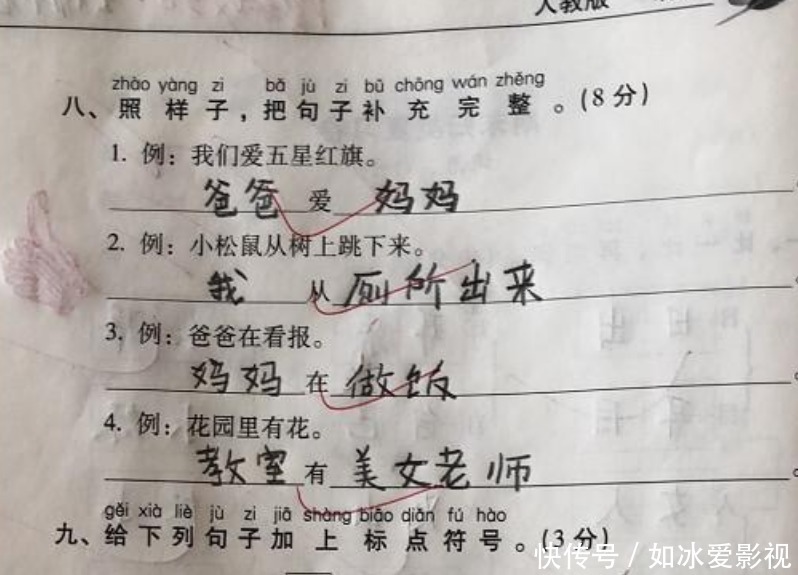 人教版
zhào yàng zi bǎ jù zi bǔ chōng wán zhěng
八、照样子，把句子补充完整。(8分)
1. 例：我们爱五星红旗。
爸爸爱妈妈。
2. 例：小松鼠从树上跳下来。
我从厕所出来。
3. 例：爸爸在看报。
妈妈在做饭。
4. 例：花园里有花。
教室有美女老师。
gěi xià liè jù zi jiā shàng biāo diǎn fú hào
九、给下列句子加上标点符号。(3分)
快传号/如冰爱影视